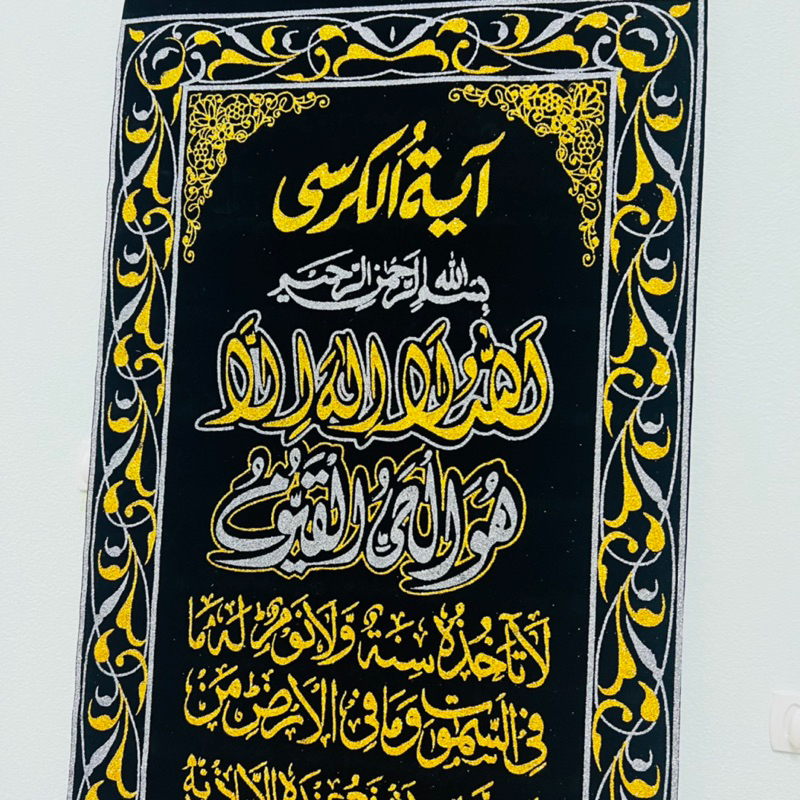 آيةُ الكرسى
بسم الله الرحمن الرحيم
اَللّٰهُ لَا اِلٰهَ اِلَّا
هُوَ الْحَىُّ الْقَيُّومُ
لَا تَأْخُذُهُ سِنَةٌ وَّلَا نَوْمٌ لَهُ مَا
فِى السَّمٰوَاتِ وَمَا فِى الْاَرْضِ مَنْ
عِنْدَهُ اِلَّا بِاِذْنِهِ